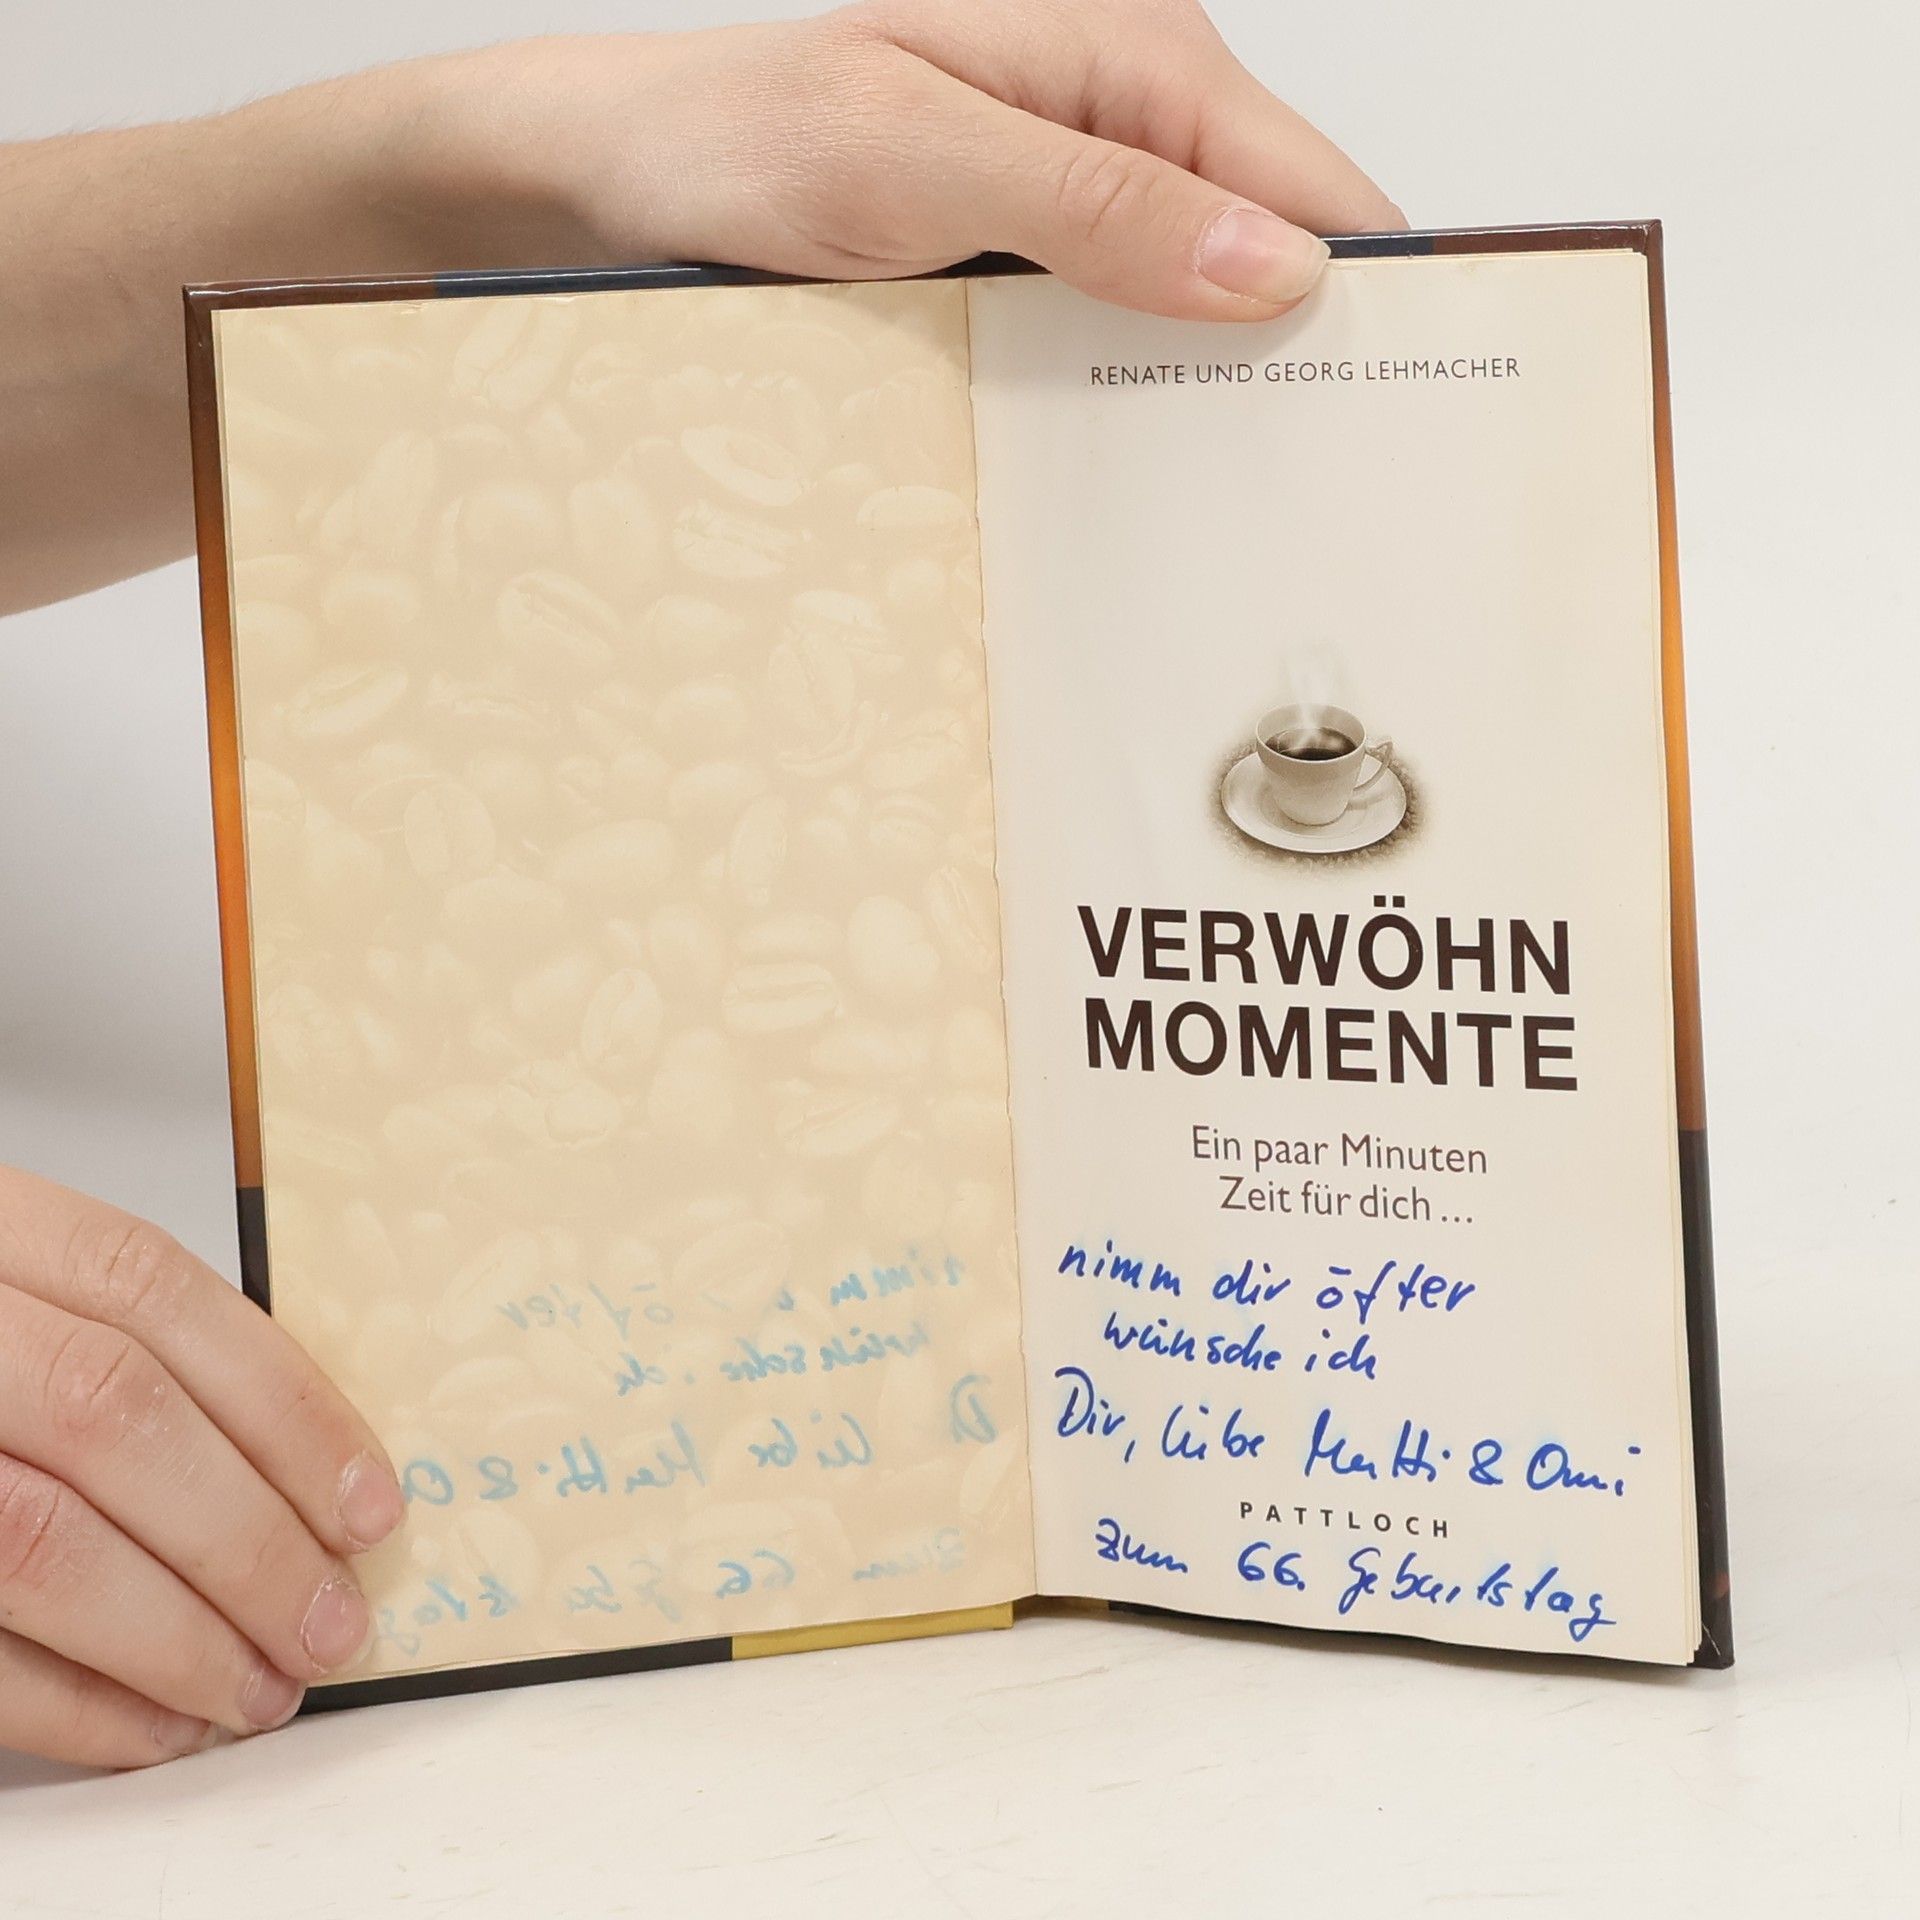 RENATE UND GEORG LEHMACHER
VERWÖHN
MOMENTE
Ein paar Minuten
Zeit für dich ...
nimm dir öfter
wünsche ich
Dir, liebe Mutti & Omi
PATTLOCH
zum 66. Geburtstag